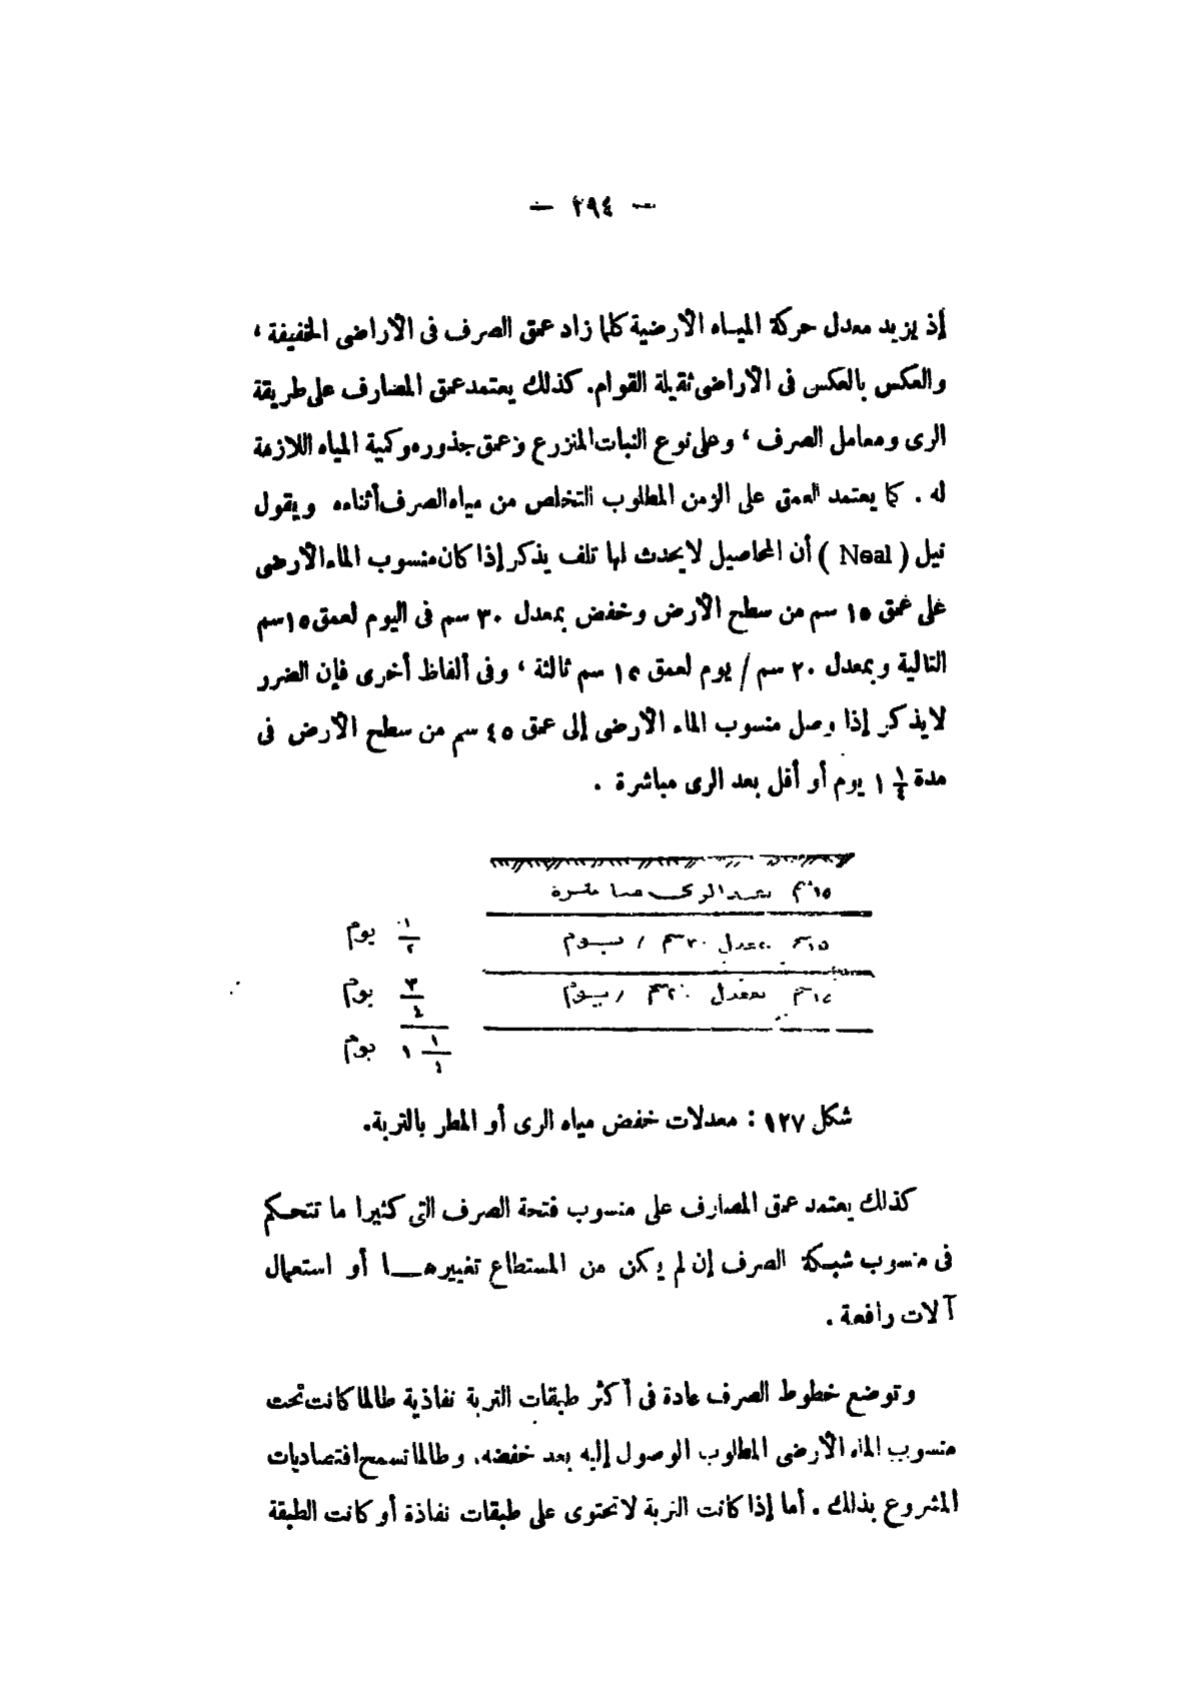 — ٢٩٤ —
إذ يزيد معدل حركة الميـاه الأرضية كلما زاد عمق الصرف فى الأراضى الخفيفة ،
والعكس بالعكس فى الأراضى ثقيلة القوام. كذلك يعتمد عمق المصارف على طريقة
الرى ومعامل الصرف ، وعلى نوع النبات المنزرع وعمق جذوره وكمية المياه اللازمة
له . كما يعتمد العمق على الزمن المطلوب التخلص من مياه الصرف أثناءه ويقول
نيل ( Neal ) أن المحاصيل لا يحدث لها تلف يذكر إذا كان منسوب الماء الأرضى
على عمق ١٥ سم من سطح الأرض وخفض بمعدل ٣٠ سم فى اليوم لعمق ١٥ سم
التالية وبمعدل ٢٠ سم / يوم لعمق ١٥ سم ثالثة ، وفى ألفاظ أخرى فإن الضرر
لا يذكر إذا وصل منسوب الماء الأرضى إلى عمق ٤٥ سم من سطح الأرض فى
مدة ١ ١/٤ يوم أو أقل بعد الرى مباشرة .
١٥ سم بعد الرى مباشرة
١٥ سم بمعدل ٣٠ سم / يوم ١/٢ يوم
١٥ سم بمعدل ٢٠ سم / يوم ٣/٤ يوم
١ ١/٤ يوم
شكل ١٢٧ : معدلات خفض مياه الرى أو المطر بالتربة.
كذلك يعتمد عمق المصارف على منسوب فتحة الصرف التى كثيرا ما تتحكم
فى منسوب شبكة الصرف إن لم يكن من المستطاع تغييرهـــا أو استعمال
آلات رافعة .
وتوضع خطوط الصرف عادة فى أكثر طبقات التربة نفاذية طالما كانت تحت
منسوب الماء الأرضى المطلوب الوصول إليه بعد خفضه، وطالما تسمح اقتصاديات
المشروع بذلك . أما إذا كانت التربة لا تحتوى على طبقات نفاذة أو كانت الطبقة